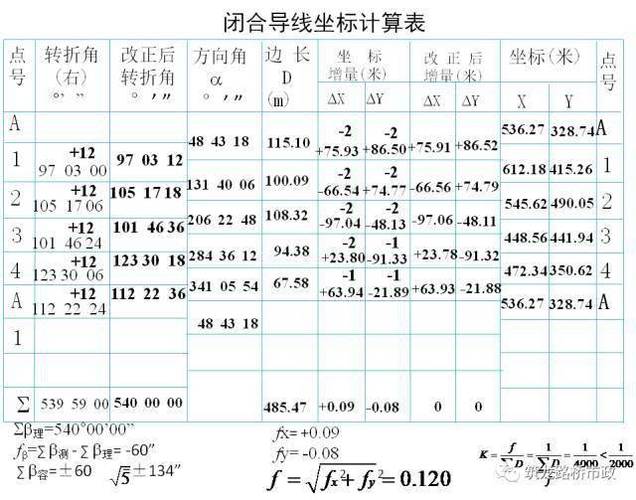 闭合导线坐标计算表
点号 转折角(右) ° ′ ″ 改正后转折角 ° ′ ″ 方向角 α ° ′ ″ 边 长 D (m) 坐 标 增量(米) ΔX ΔY 改 正 后 增量(米) ΔX ΔY 坐标(米) X Y 点号
A 536.27 328.74 A
48 43 18 115.10 -2 +75.93 -2 +86.50 +75.91 +86.52
1 +12 97 03 00 97 03 12 612.18 415.26 1
131 40 06 100.09 -2 -66.54 -2 +74.77 -66.56 +74.79
2 +12 105 17 06 105 17 18 545.62 490.05 2
206 22 48 108.32 -2 -97.04 -2 -48.13 -97.06 -48.11
3 +12 101 46 24 101 46 36 448.56 441.94 3
284 36 12 94.38 -2 +23.80 -1 -91.33 +23.78 -91.32
4 +12 123 30 06 123 30 18 472.34 350.62 4
341 05 54 67.58 -1 +63.94 -1 -21.89 +63.93 -21.88
A +12 112 22 24 112 22 36 536.27 328.74 A
48 43 18
1
Σ 539 59 00 540 00 00 485.47 +0.09 -0.08 0 0
Σβ理=540°00'00"
fβ=Σβ测 - Σβ理= -60″
Σβ容=±60 √5=±134″
fx= +0.09
fy= -0.08
f = √fx²+ fy² = 0.120
K = f/ΣD = 1/(ΣD/f) = 1/4000 < 1/2000
筑龙路桥市政